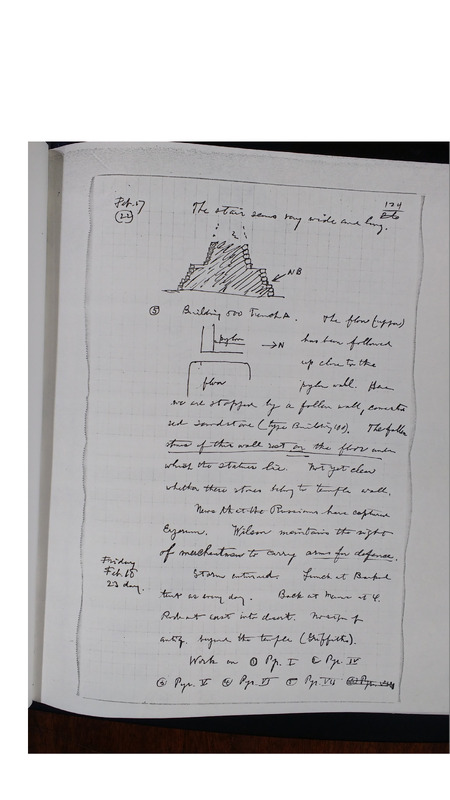 Feb. 17
(22)
124
The stair seems very wide and long.
NB
(5) Building 500 Trench A. The floor (upper)
pylon → N has been followed
up close to the
floor pylon wall. Here
we are stopped by a fallen wall, concreta
ted sandstone (type Building 100). The fallen
stones of this wall rest on the floor under
which the statues lie. Not yet clear
whether these stones belong to temple wall.
News that the Russians have captured
Erzerum. Wilson maintains the right
of merchantmen to carry arms for defence.
Friday
Feb. 18
23 day.
Storm continued. Lunch at Barkal
temple as every day. Back at Nuri at 4.
Rode out east into desert. No sign of
antiq. beyond the temple (Griffiths).
Work on ① Pyr. I ② Pyr. IV
③ Pyr. V ④ Pyr. VI ⑤ Pyr. VII